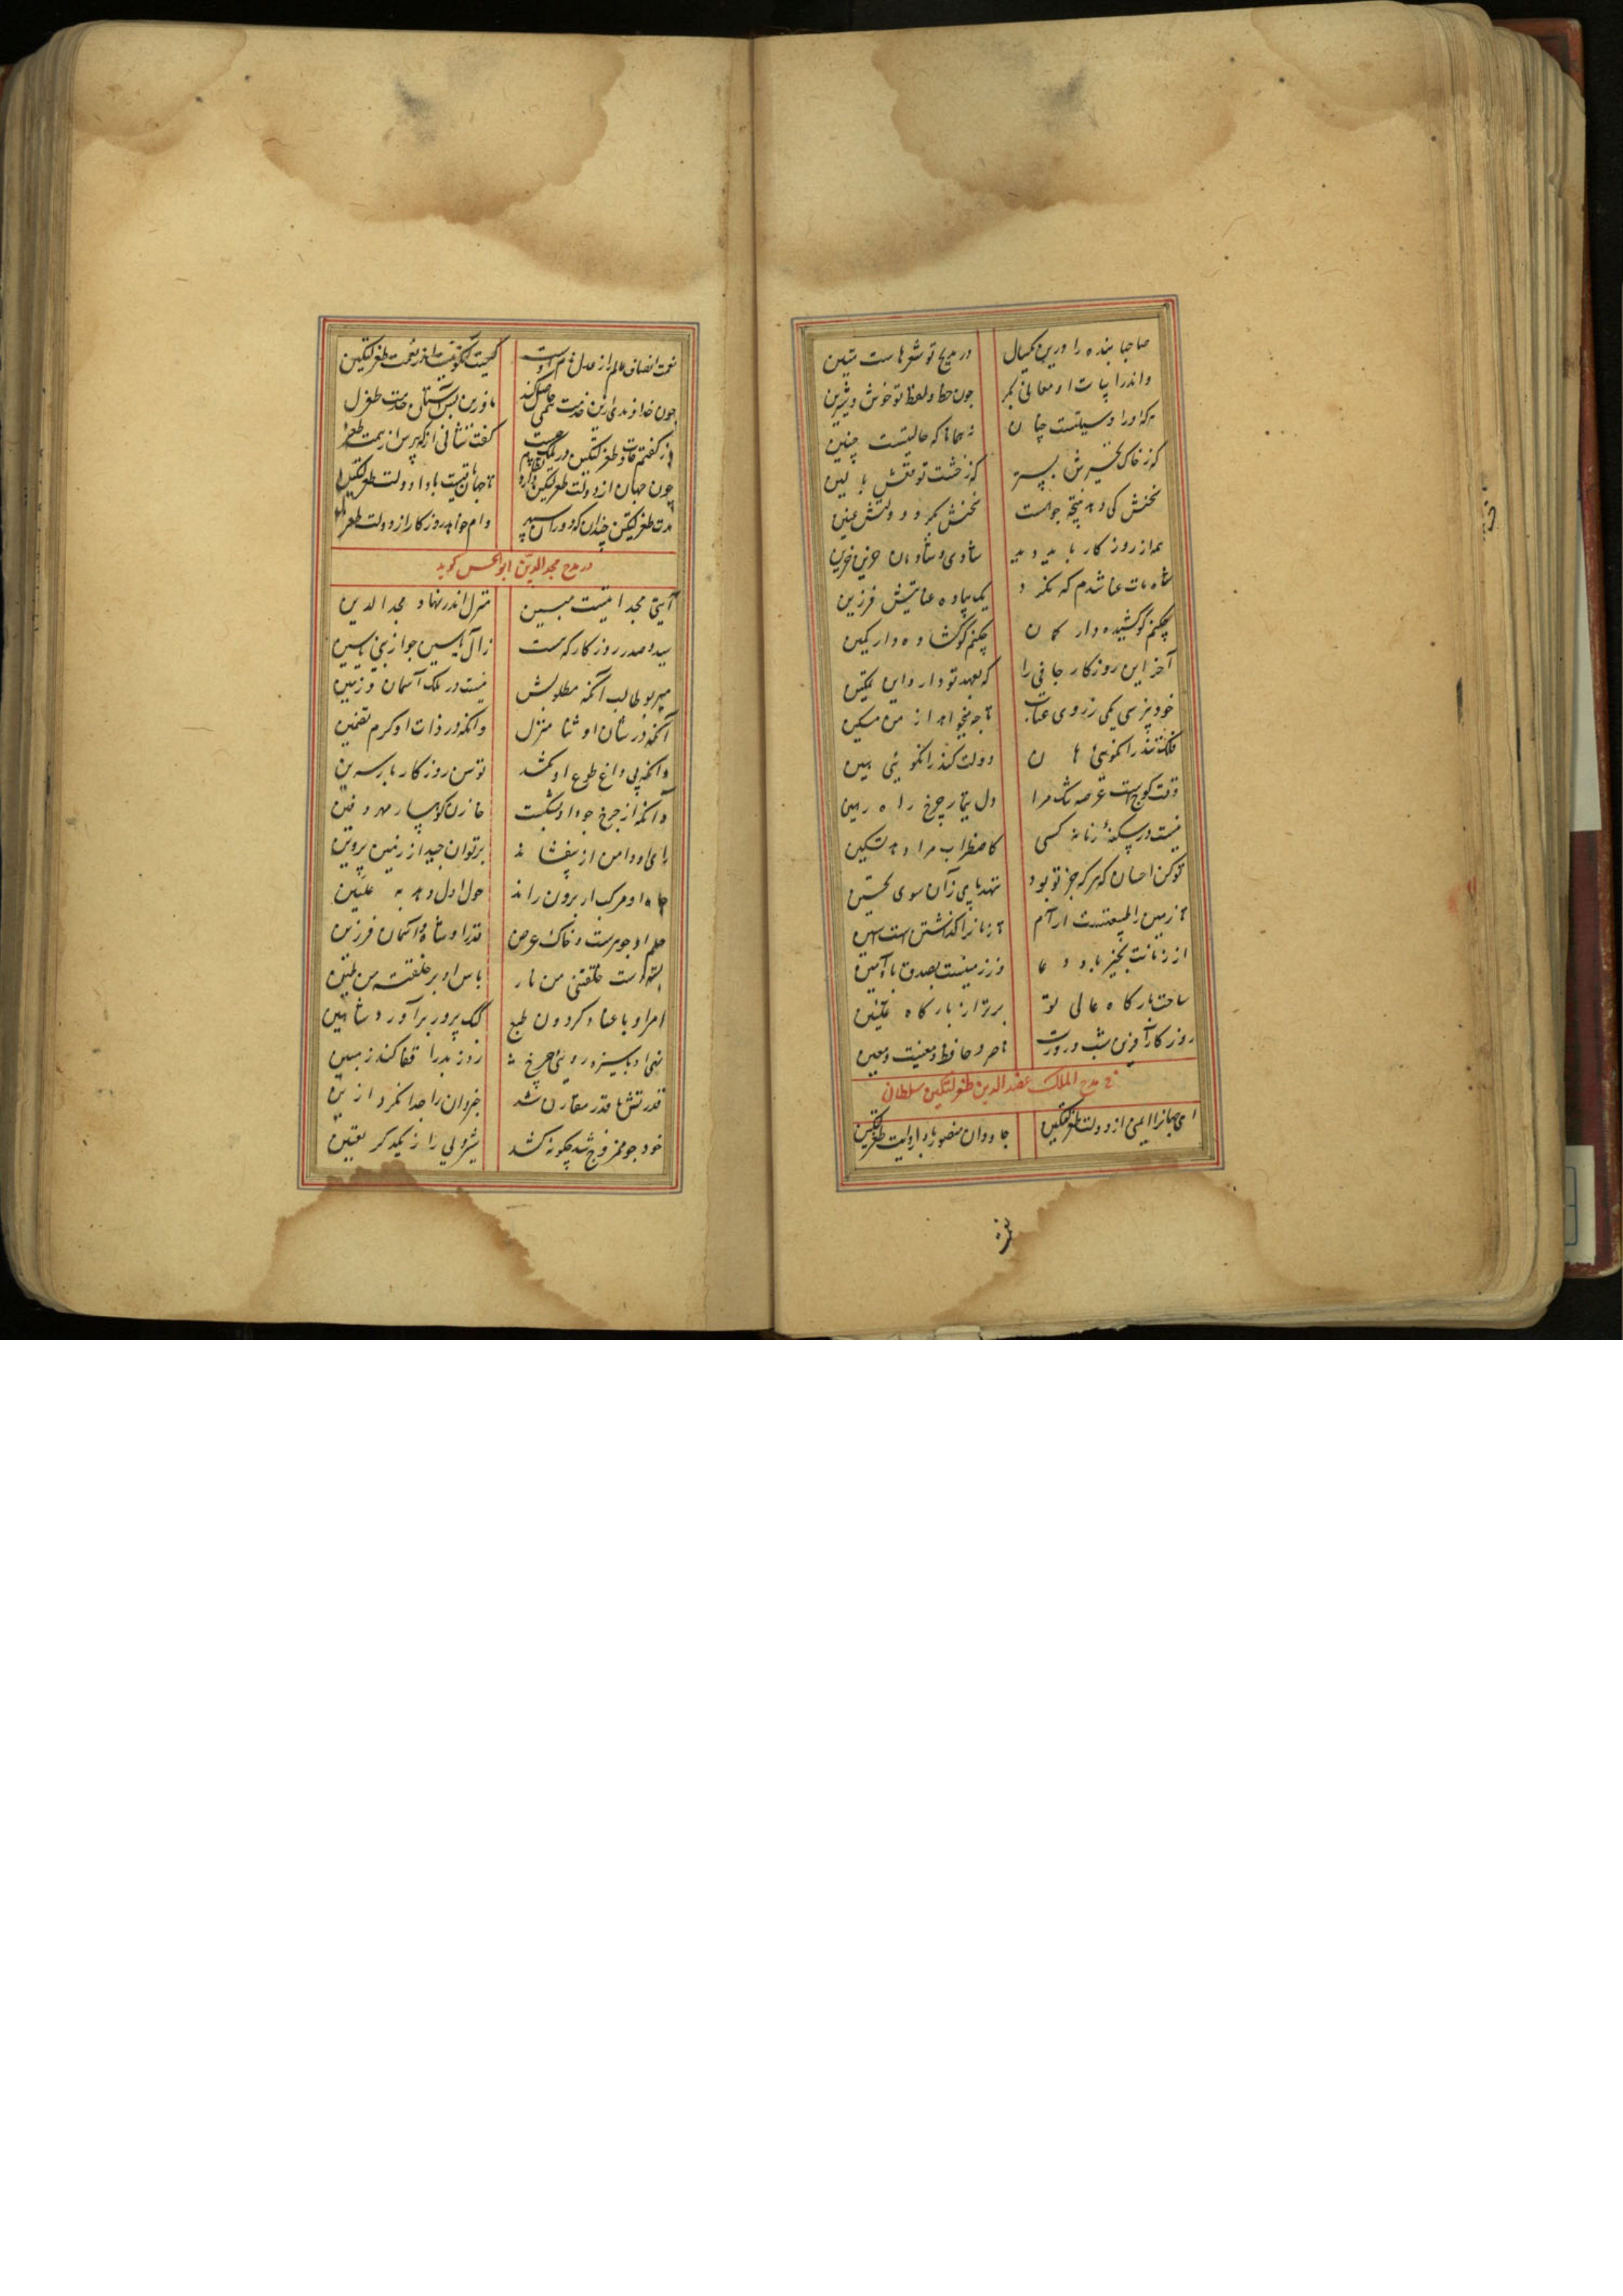 صاحبا بنده را درین یکسال
در مدیح تو شعرهاست متین
واندر ابیات او معانی بکر
چون خط و لفظ تو خوش و شیرین
که چنین حالتیست
کز خاک بستر
کر خشت بالین
بخشش کی دهد نتیجه چو هست
بخشش
همه از روزگار باید دید
شادی و شادمان حزین و حزین
شاه مات عنا شدم که نکرد
یک پیاده عنایتش فرزین
چکنم کو کشیده دارد کمان
چکنم کو گشاده دارد کمین
آخر این روزگار جافی را
که بعهد تو دارد این تمکین
خود نپرسی یکی ز روی عتاب
تا چه میخواهد از من مسکین
دولت تند را نگوئی هین
وقت کوچست عرصه تنگ مرا
دل ز تیمار چرخ راه رهین
نیست در سکنهٔ زمانه کسی
کاضطراب مرا دهد تسکین
تو کن احسان که هرکه جز تو بود
ننهد پای زآن سوی تحسین
تا زمین را طبیعتست آرام
تا زمانرا گذشتن است آیین
از زمانت بخیر باد دعا
وز زمینت بصدق باد آمین
ساحت بارگاه عالی تو
برتر از بارگاه علیین
روزگار آفرین شب و روزت
ناصر و حافظ و مغیث و معین
در مدح الملک عضدالدین طغرلتکین سلطان
ای جهانرا ایمنی از دولت طغرلتکین
جاودان منصور باد رایت طغرلتکین
نعمت
نعمت انصاف عالم را ز عدل عام اوست
کیست کو نیست اندر نعمت طغرلتکین
چون خداوندی ازین خدمت همی حاصل کند
مانده زین پس آستان و خدمت طغرلتکین
گفت نشانی از که پرس از همت طغرلتکین
چون جهان از دولت طغرلتکین دارد نظام
تا جهان باقیست بادا دولت طغرلتکین
مدت طغرلتکین چندان که دوران سپهر
وام خواهد روزگار از دولت طغرلتکین
در مدح مجدالدین ابوالحسن گوید
آیتی مجد آیتیست مبین
منزل اندر نهاد مجدالدین
سید و صدر روزگار که هست
زآل یاسین چو از نبی یاسین
میر بوطالب آنکه مطلوبش
نیست در ملک آسمان و زمین
آنکه در شان او ثنا منزل
وانکه در ذات او کرم تضمین
وانکه بی داغ طوع او نکشد
توسن روزگار بار سرین
وانکه از چرخ جود او بشکست
خازن کوهسار مهر دفین
رای او دامن ار بیفشاند
برتوان چید از زمین پروین
جاه او مرکب ار برون راند
حول او دل دهد به علیین
حلم او جوهرست و خاک عرض
قدر او شاه و آسمان فرزین
بسته است خلقتنی من نار
باس او بر خلقته من طین
امر او با عناد گردون طبع
کبک پرور برآورد شاهین
نهی او با ستیزه روئی چرخ
روز بد را قفا کند ز جبین
قدرتش با قدر مقارن شد
جز دوان را جدا نکرد از این
خود چو ممزوج شد چگونه کند
شیر و می را ز یکدگر تعیین